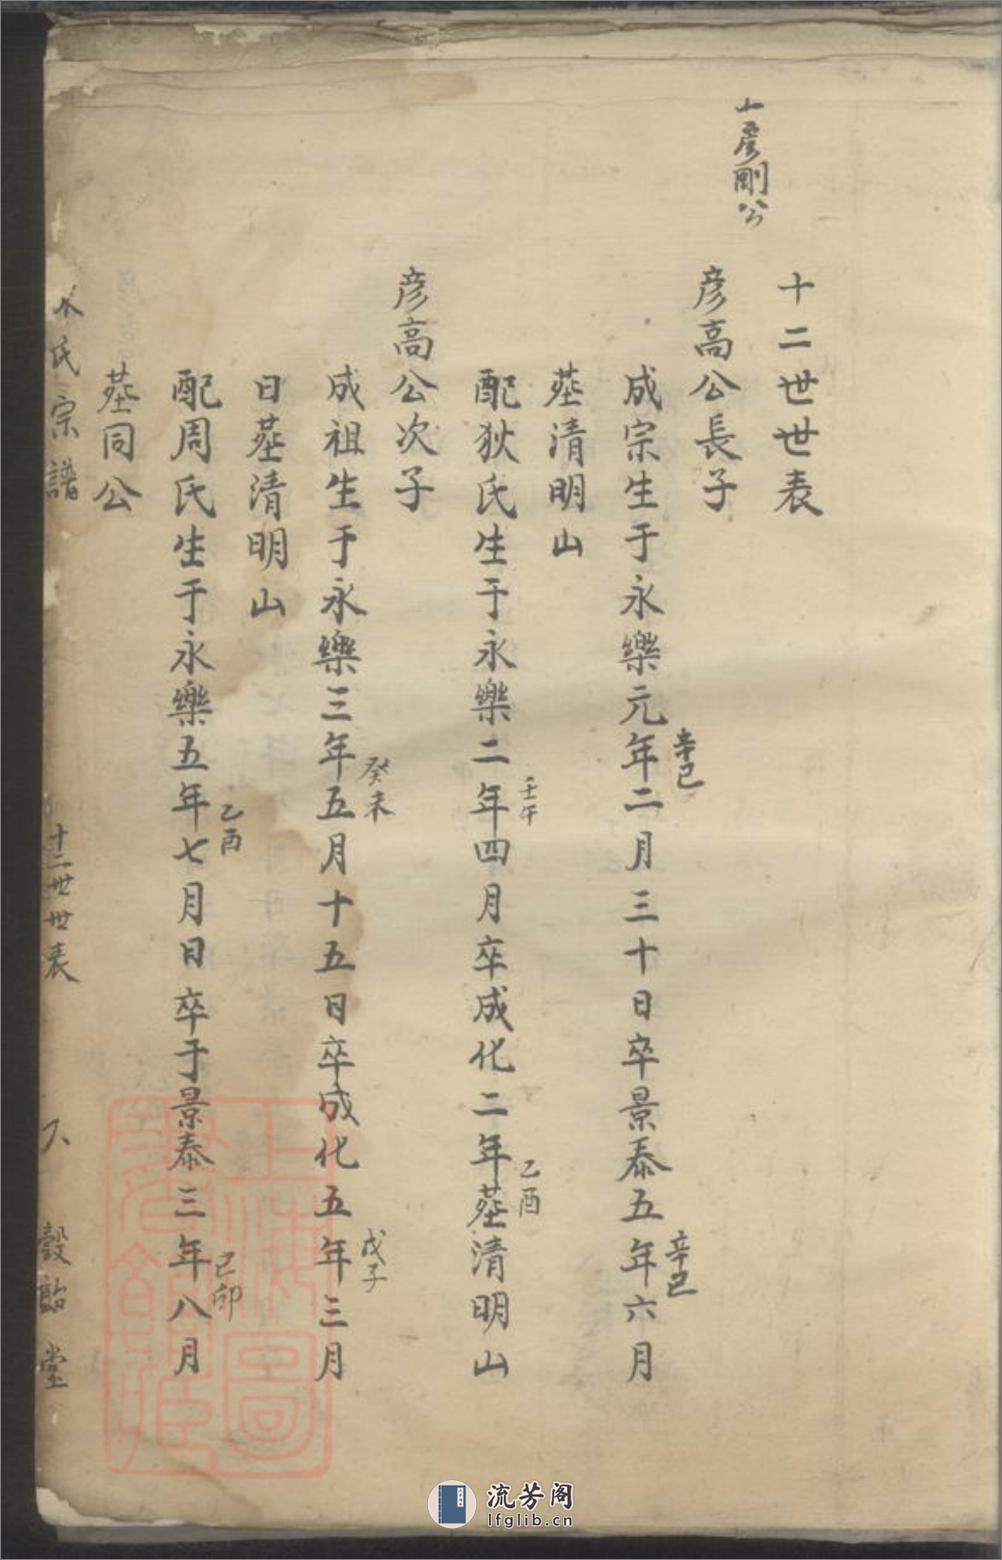 十二世世表
彦剛公
彦高公長子
成宗生于永樂元年二月三十日卒景泰五年六月
辛巳
辛巳
葬清明山
配狄氏生于永樂二年四月卒成化二年葬清明山
壬午
乙酉
彦高公次子
成祖生于永樂三年五月十五日卒成化五年三月
癸未
戊子
日葬清明山
配周氏生于永樂五年七月日卒于景泰三年八月
乙酉
己卯
葬同公
氏宗譜
十二世世表
六
穀詒堂
上海圖書館藏
流芳阁
lfglib.cn